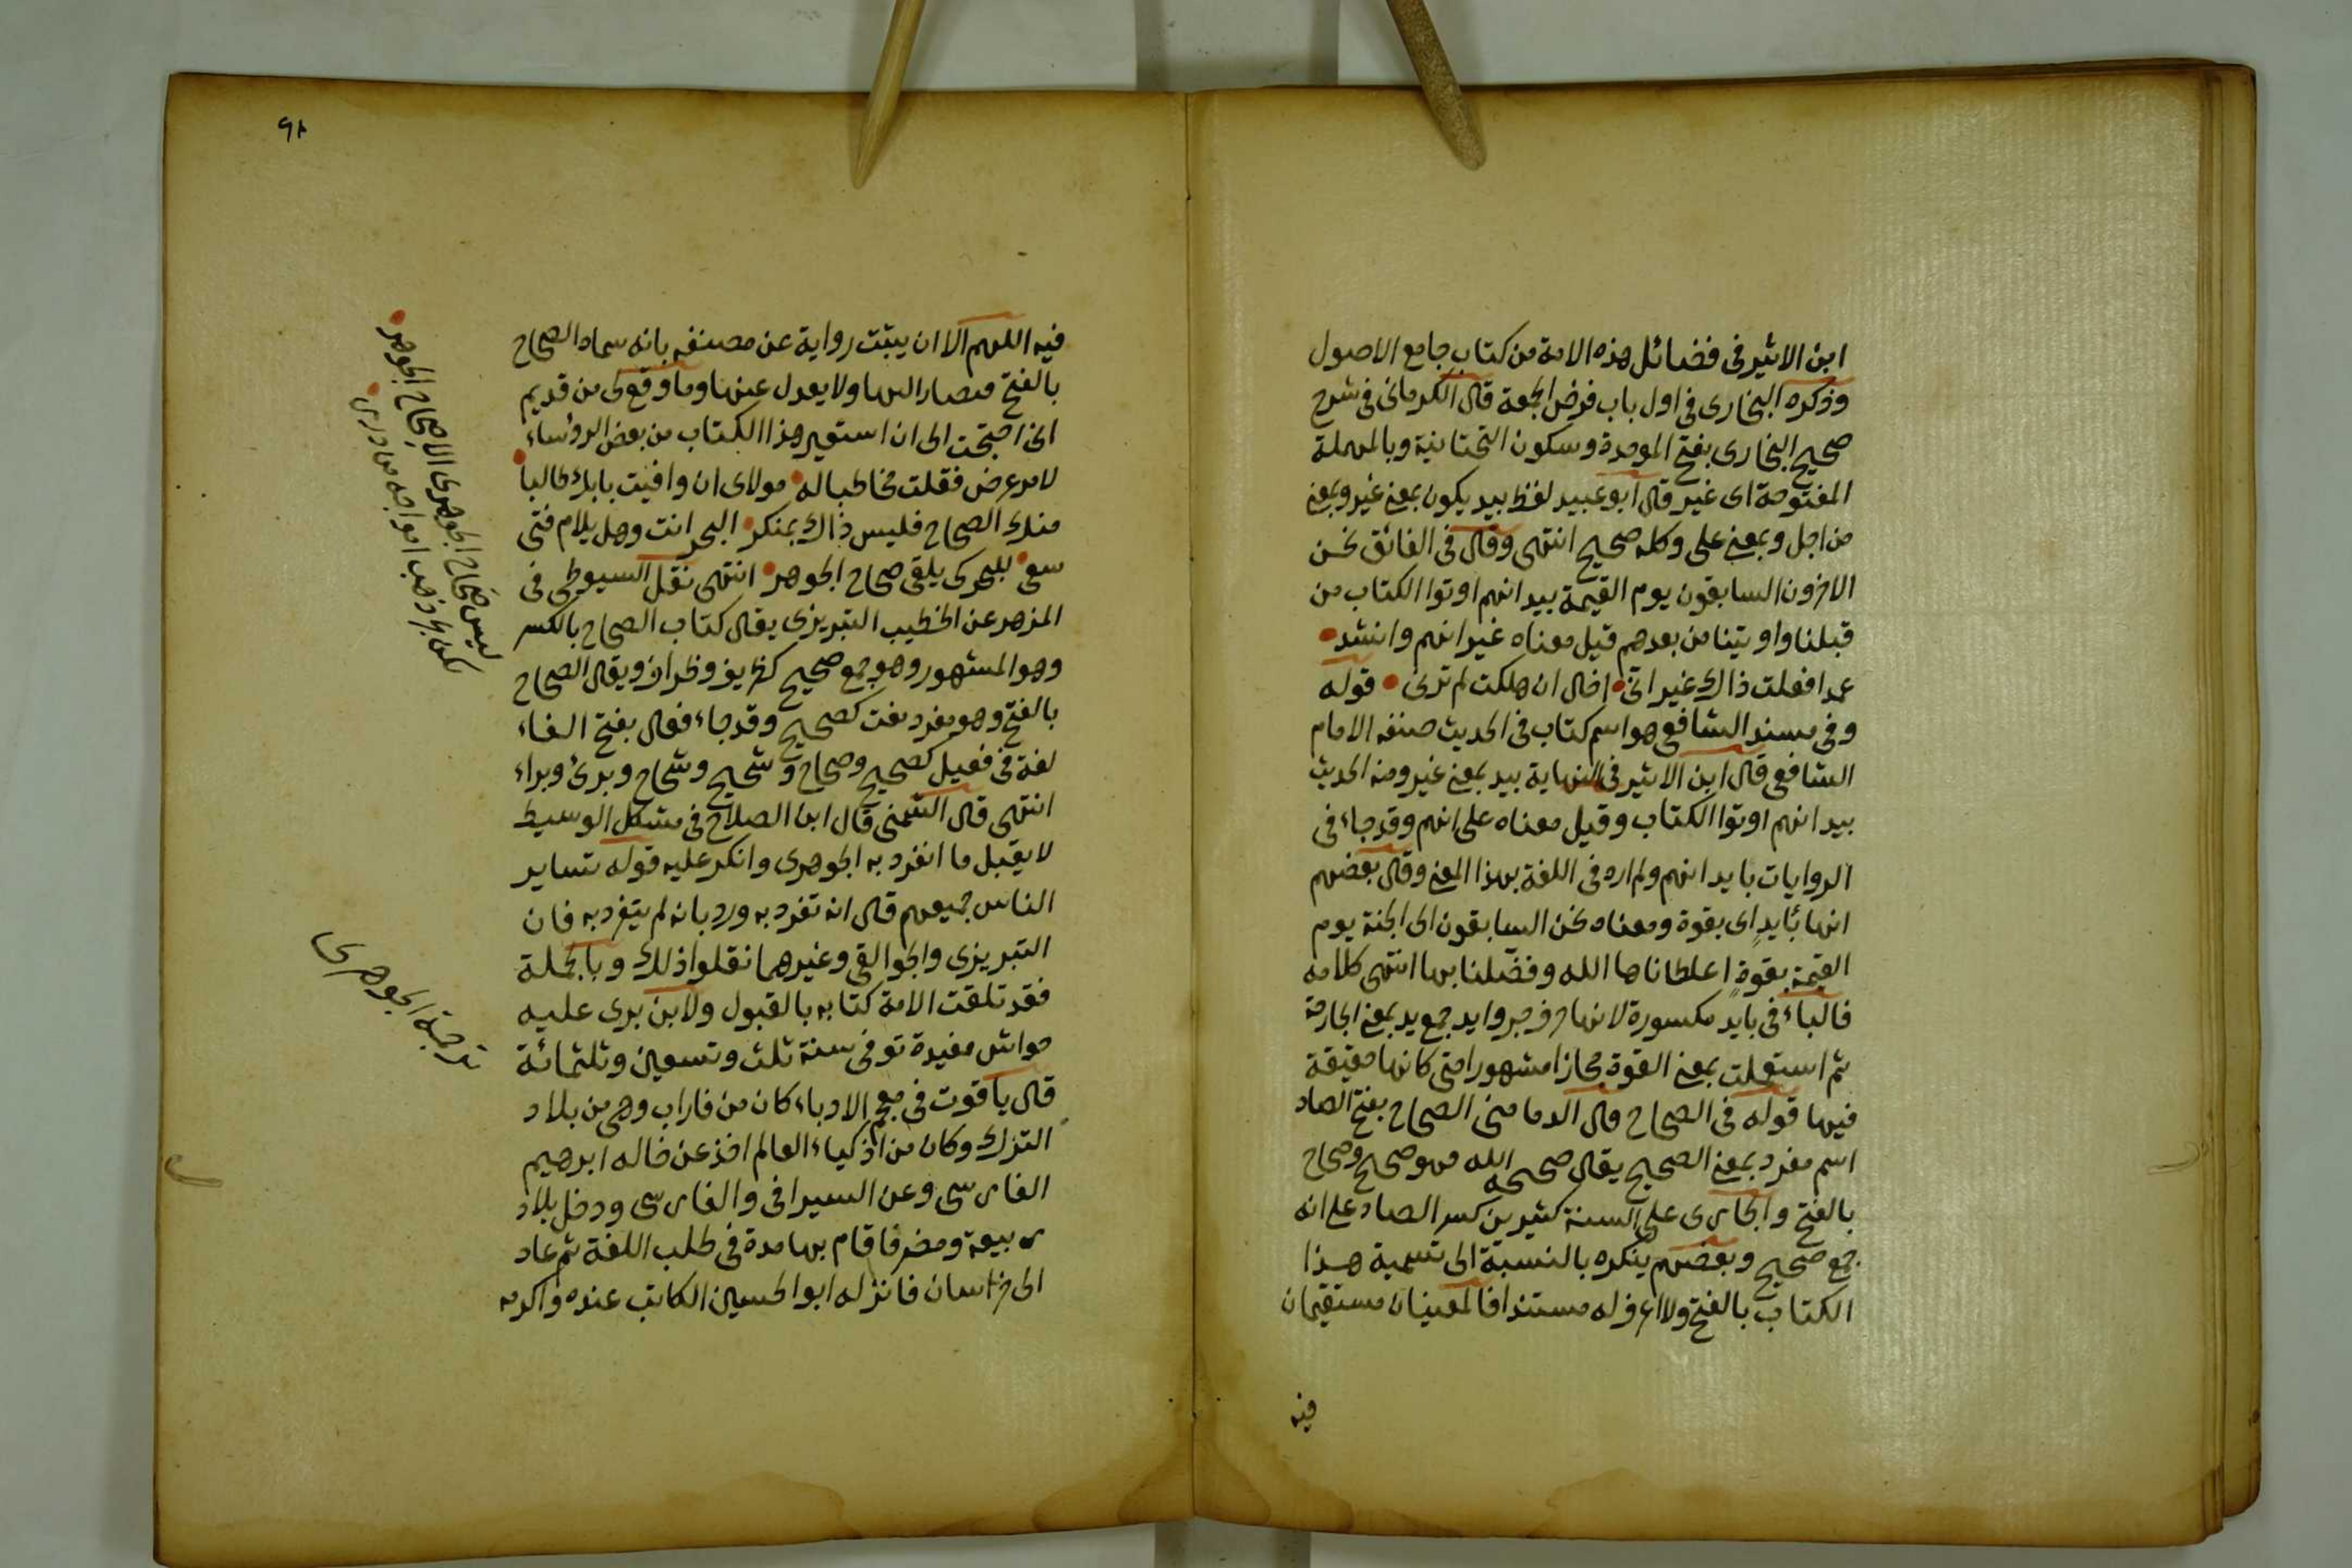 ابن الاثير فى فضائل هذه الامة من كتاب جامع الاصول
وذكره البخارى فى اول باب فرض الجمعة قال الكرمانى فى شرح
صحيح البخارى بفتح الموحدة وسكون التحتانية وبالمهملة
المفتوحة اى غير قال ابو عبيد لفظ بيد يكون بمعنى غير وبمعنى
من اجل وبمعنى على وكله صحيح انتهى وقال فى الفائق نحن
الاخرون السابقون يوم القيمة بيد انهم اوتوا الكتاب من
قبلنا واوتينا من بعدهم قيل معناه غير انهم وانشد
عمدا فعلت ذاك غير انى اخال ان هلكت لم ترنى قوله
وفى مسند الشافعى هو اسم كتاب فى الحديث صنفه الامام
الشافعى قال ابن الاثير فى النهاية بيد بمعنى غير ومنه الحديث
بيد انهم اوتوا الكتاب وقيل معناه على انهم وقد جاء فى
الروايات بايد انهم ولم اره فى اللغة بهذا المعنى وقال بعضهم
انها بأيدٍ اى بقوة ومعناه نحن السابقون الى الجنة يوم
القيمة بقوةٍ اعطاناها الله وفضّلنا بها انتهى كلامه
فالباء فى بايد مكسورة لانها حرف جر وايد جمع يد بمعنى الجارحة
ثم استعملت بمعنى القوة مجازا مشهورا حتى كانها حقيقة
فيها قوله فى الصحاح قال الدمامينى الصحاح بفتح الصاد
اسم مفرد بمعنى الصحيح يقال صححه الله فهو صحيح وصحاح
بالفتح والجارى على السنة كثيرين كسر الصاد على انه
جمع صحيح وبعضهم ينكره بالنسبة الى تسمية هذا
الكتاب بالفتح ولا اعرف له مستندا فالمعنيان مستقيمان
فيه
٩٨
فيه اللهم الا ان يثبت رواية عن مصنفه بانه سماه الصحاح
بالفتح فيصار اليها ولا يعدل عنها وما وقع لى من قديم
انى احتجت الى ان استعير هذا الكتاب من بعض الرؤساء
لامر عرض فقلت مخاطبا له مولاى ان وافيت بابك طالبا
منك الصحاح فليس ذاك بمنكر البحر انت وهل يلام فتى
سعى للبحر كى يلقى صحاح الجوهر انتهى نقل السيوطى فى
المزهر عن الخطيب التبريزى يقال كتاب الصحاح بالكسر
وهو المشهور وهو جمع صحيح كظريف وظراف ويقال الصحاح
بالفتح وهو مفرد نعت كصحيح وقد جاء فعال بفتح الفاء
لغة فى فعيل كصحيح وصحاح وشحيح وشحاح وبرئ وبراء
انتهى قال الشمنى قال ابن الصلاح فى مشكل الوسيط
لا يقبل ما انفرد به الجوهرى وانكر عليه قوله تساير
الناس جميعهم قال انه تفرد به ورد بانه لم يتفرد به فان
التبريزى والجواليقى وغيرهما نقلوا ذلك وبالجملة
فقد تلقت الامة كتابه بالقبول ولابن برى عليه
حواش مفيدة توفى سنة ثلث وتسعين وثلثمائة
قال ياقوت فى معجم الادباء كان من فاراب وهى من بلاد
الترك وكان من اذكياء العالم اخذ عن خاله ابرهيم
الفارسى وعن السيرافى والفارسى ودخل بلاد
ربيعة ومضر فاقام بها مدة فى طلب اللغة ثم عاد
الى خراسان فانزله ابو الحسين الكاتب عنده واكرمه
ليس صحاح الجوهرى الا صحاح الجوهر
ترجمة الجوهرى